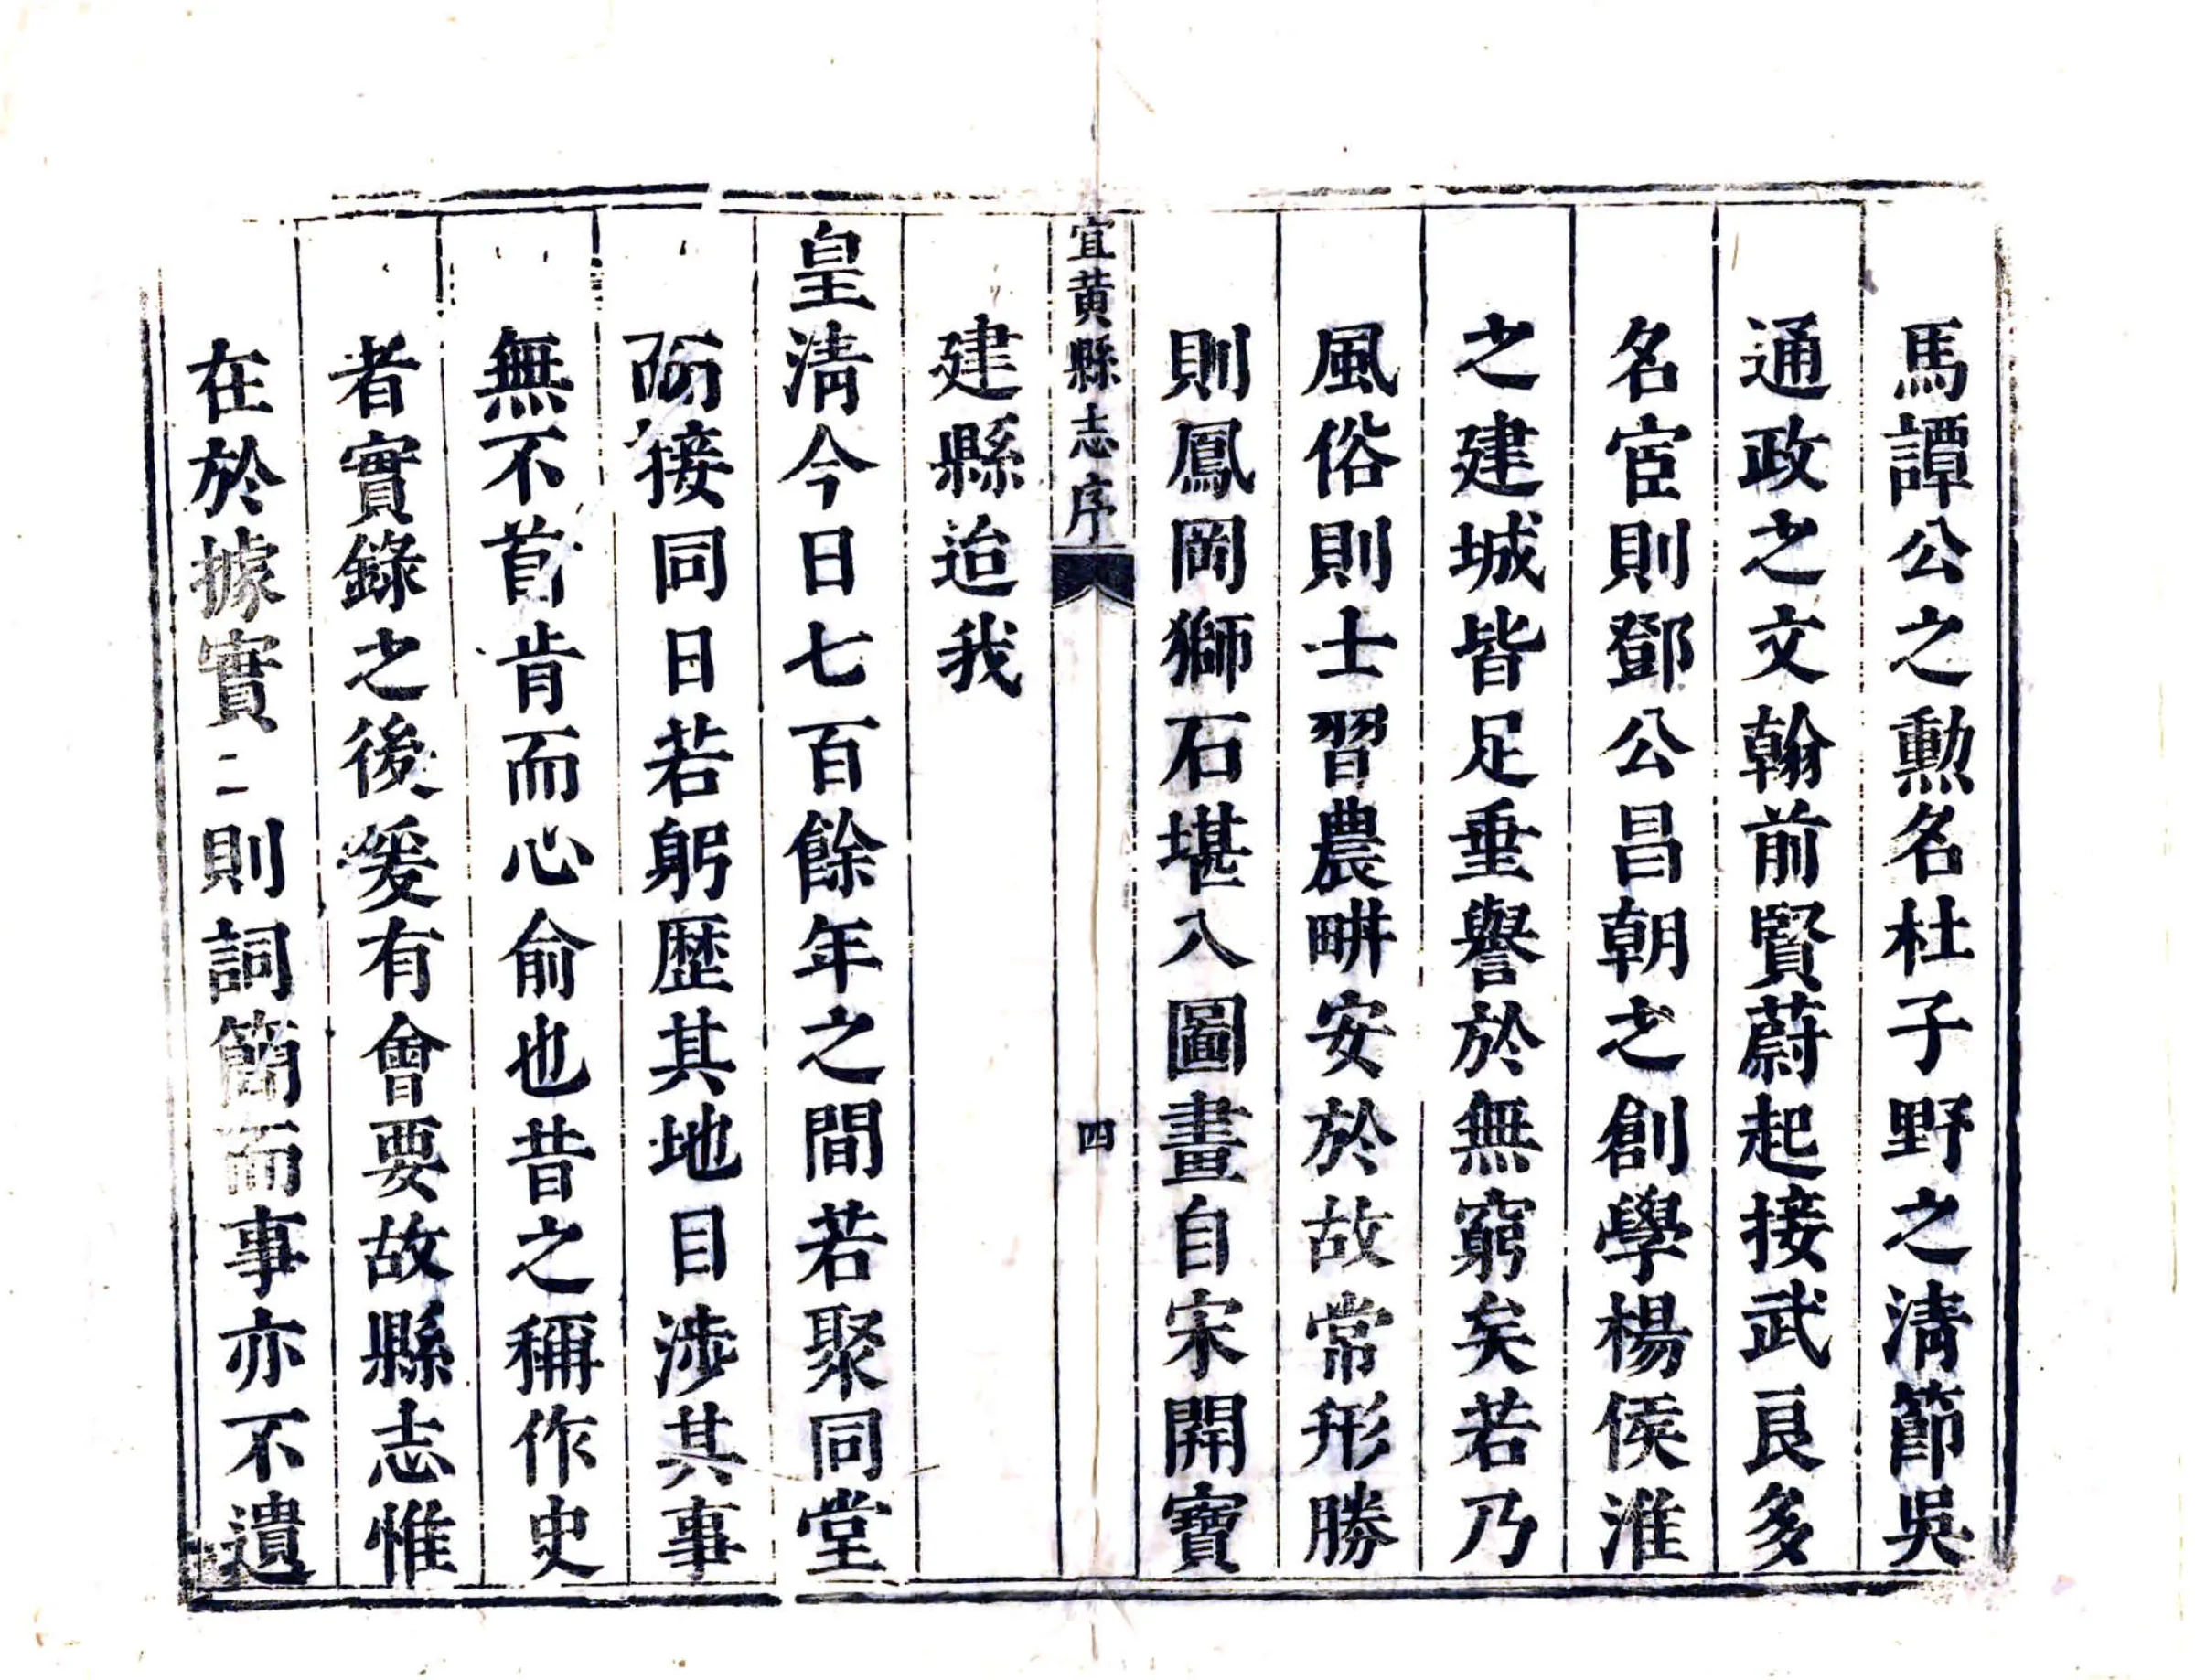 馬譚公之勲名杜子野之清節吳
通政之文翰前賢蔚起接武良多
名宦則鄧公昌朝之創學楊侯淮
之建城皆足垂譽於無窮矣若乃
風俗則士習農畊安於故常形勝
則鳳岡獅石堪入圖畫自宋開寶
宜黄縣志序
四
建縣迨我
皇清今日七百餘年之間若聚同堂
接同日若躬歴其地目渉其事
無不首肯而心俞也昔之稱作史
者實錄之後爰有會要故縣志惟
在於據實二則詞簡而事亦不遺